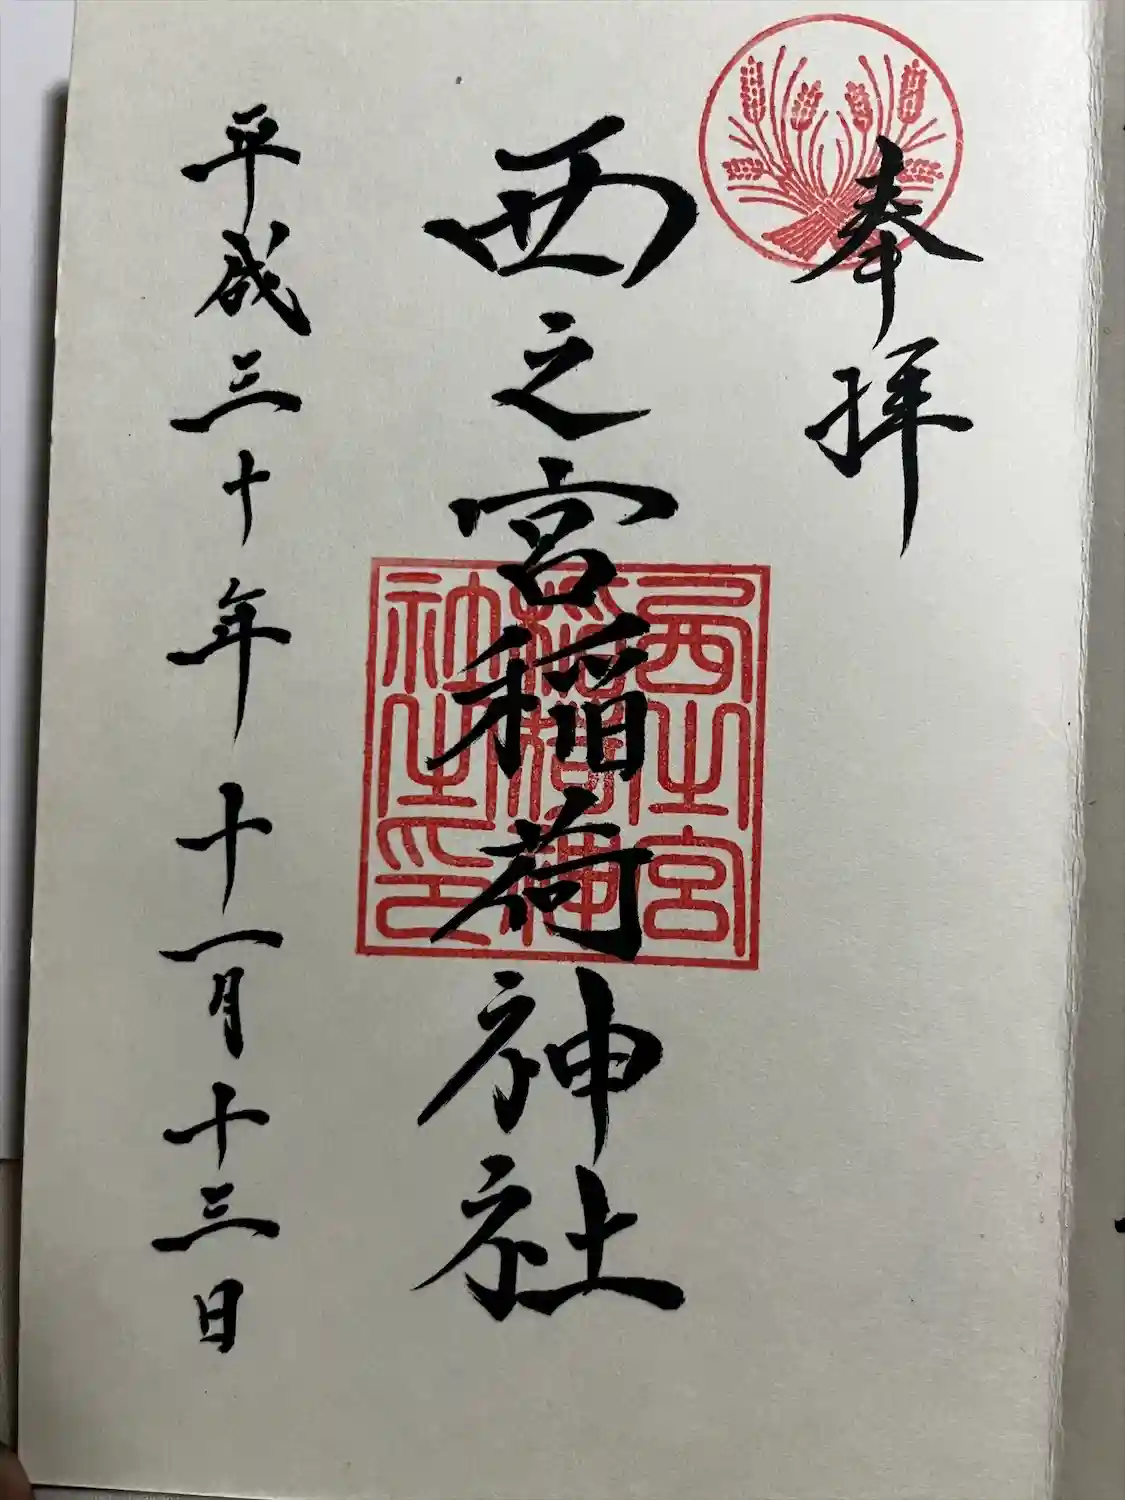 奉拝
西之宮稲荷神社
西之宮
稲荷神
社之印
平成三十年十一月十三日